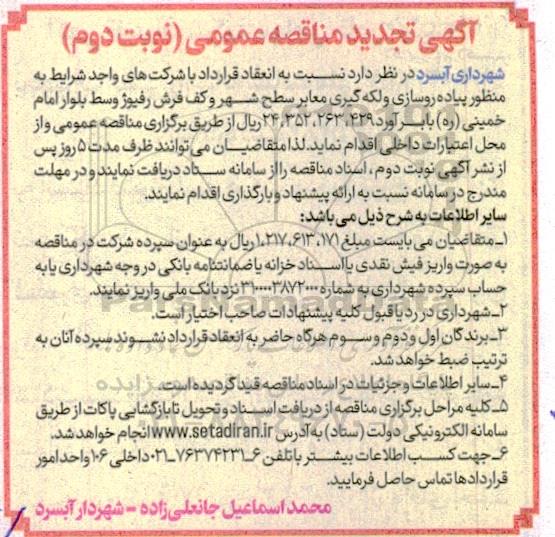 آگهی تجدید مناقصه عمومی (نوبت دوم)
شهرداری آبسرد در نظر دارد نسبت به انعقاد قرارداد با شرکت های واجد شرایط به
منظور پیاده روسازی و لکه گیری معابر سطح شهر و کف فرش رفیوژ وسط بلوار امام
خمینی (ره) با برآورد ۲۴،۳۵۲،۲۶۳،۴۲۹ ریال از طریق برگزاری مناقصه عمومی و از
محل اعتبارات داخلی اقدام نماید. لذا متقاضیان می توانند ظرف مدت ۵ روز پس
از نشر آگهی نوبت دوم ، اسناد مناقصه را از سامانه ستاد دریافت نمایند و در مهلت
مندرج در سامانه نسبت به ارائه پیشنهاد و بارگذاری اقدام نمایند.
سایر اطلاعات به شرح ذیل می باشد:
۱ـ متقاضیان می بایست مبلغ ۱،۲۱۷،۶۱۳،۱۷۱ ریال به عنوان سپرده شرکت در مناقصه
به صورت واریز فیش نقدی یا اسناد خزانه یا ضمانتنامه بانکی در وجه شهرداری یا به
حساب سپرده شهرداری به شماره ۳۱۰۰۰۰۳۸۷۲۰۰۰ نزد بانک ملی واریز نمایند.
۲ـ شهرداری در رد یا قبول کلیه پیشنهادات صاحب اختیار است.
۳ـ برندگان اول و دوم و سوم هرگاه حاضر به انعقاد قرارداد نشوند سپرده آنان به
ترتیب ضبط خواهد شد.
۴ـ سایر اطلاعات و جزئیات در اسناد مناقصه قید گردیده است.
۵ـ کلیه مراحل برگزاری مناقصه از دریافت اسناد و تحویل تا بازگشایی پاکات از طریق
سامانه الکترونیکی دولت (ستاد) به آدرس www.setadiran.ir انجام خواهد شد.
۶ـ جهت کسب اطلاعات بیشتر با تلفن ۶ـ۷۶۳۷۴۲۳۱ـ۰۲۱ داخلی ۱۰۶ واحد امور
قراردادها تماس حاصل فرمایید.
محمد اسماعیل جانعلی زاده - شهردار آبسرد